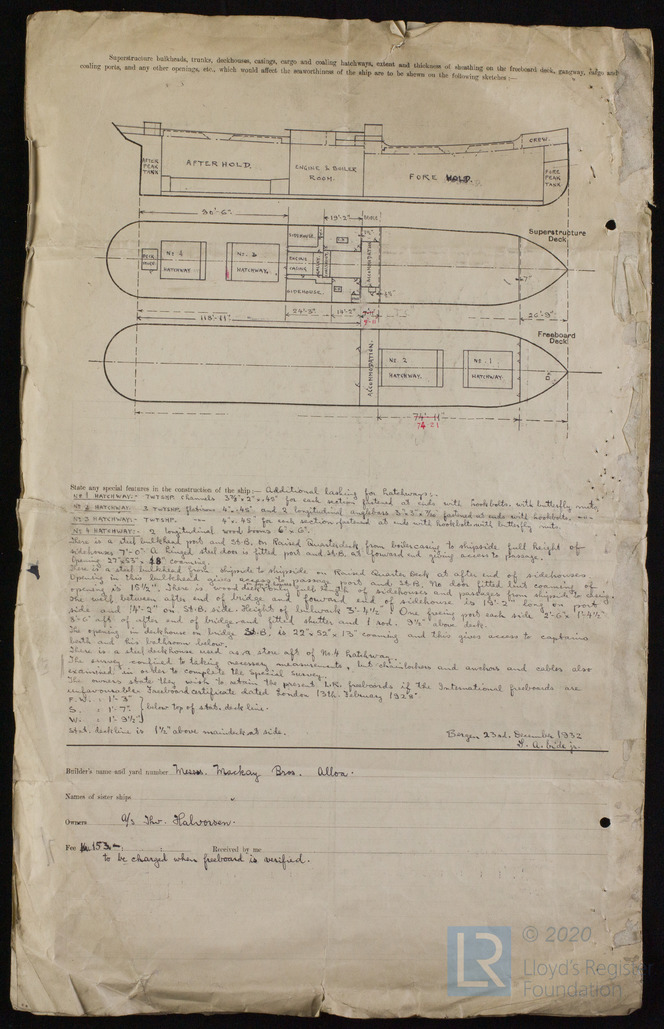 Superstructure bulkheads, trunks, deckhouses, casings, cargo and coaling hatchways, extent and thickness of sheathing on the freeboard deck, gangway, cargo and
coaling ports, and any other openings, etc., which would affect the seaworthiness of the ship are to be shown on the following sketches :—
CREW.
AFTER PEAK TANK
AFTER HOLD.
ENGINE & BOILER ROOM.
FORE HOLD.
FORE PEAK TANK
19'-2"
Superstructure Deck
SIDEHOUSE
Nº 4 HATCHWAY.
Nº 3 HATCHWAY.
ENGINE CASING
ACCOMMODATION
SIDEHOUSE.
24'-3"
14'-2"
26'-9"
113'-11"
Freeboard Deck
ACCOMMODATION.
Nº 2 HATCHWAY.
Nº 1 HATCHWAY.
74'-11"
74.21
State any special features in the construction of the ship :— Additional lashing for hatchways:-
Nº 1 HATCHWAY:- TWTSHP. channels 3½"× 2"×.45" for each section fastened at ends with hookbolts with butterfly nuts,
Nº 2 HATCHWAY: 2 TWTSHP. flatiron 4"×.45" and 2 longitudinal anglebars 3"×3"× fastened at ends with hookbolts
Nº 3 HATCHWAY:- TWTSHP. 4"×.45" for each section fastened at ends with hookbolts with butterfly nuts.
Nº 4 HATCHWAY: 2 longitudinal wood booms 6"× 6".
There is a steel bulkhead port and St.B. on Raised Quarterdeck from boilercasing to shipside full height of
sidehouses 7'-0". A hinged steel door is fitted port and St.B. at forward end giving access to passage.
Opening 27"×53"× 18" coaming.
There is a steel bulkhead from shipside to shipside on Raised Quarter Deck at after end of sidehouses.
Opening in this bulkhead gives access to passage port and St.B. No door fitted but coaming of
opening is 15½". There is wood deck full length of sidehouses and passages from shipside to casing.
The well between after end of bridge and forward end of sidehouse is 19'-2" long on port
side and 14'-2" on St.B. side. Height of bullwark 3'-4½". One freeing port each side 2'-6"× 1'-4½"
3'-6" aft of after end of bridge and fitted shutter and 1 rod. 9½" above deck.
The opening in deckhouse on bridge St.B. is 22"×52"× 13" coaming and this gives access to captains
bath and his bathroom below.
There is a steel deckhouse used as a store aft of No 4 hatchway.
The survey confined to taking necessary measurements, but chainlockers and anchors and cables also
examined in order to complete the Special Survey.
The owners state they wish to retain the present L.R. freeboards if the International freeboards are
unfavourable. Freeboard certificate dated London 13th. February 1928.
F.W. : 1'-3"
S. : 1'-7" } below top of stat. deck line.
W. : 1'-9½"
Stat. deckline is 1½" above maindeck at side.
Bergen 23rd. December 1932
Builder's name and yard number Messrs. Mackay Bros. Alloa.
Names of sister ships
Owners A/S Thv. Halvorsen.
Fee Kr. 153.- : : Received by me
to be charged when freeboard is verified.
LR © 2020
Lloyd's Register
Foundation